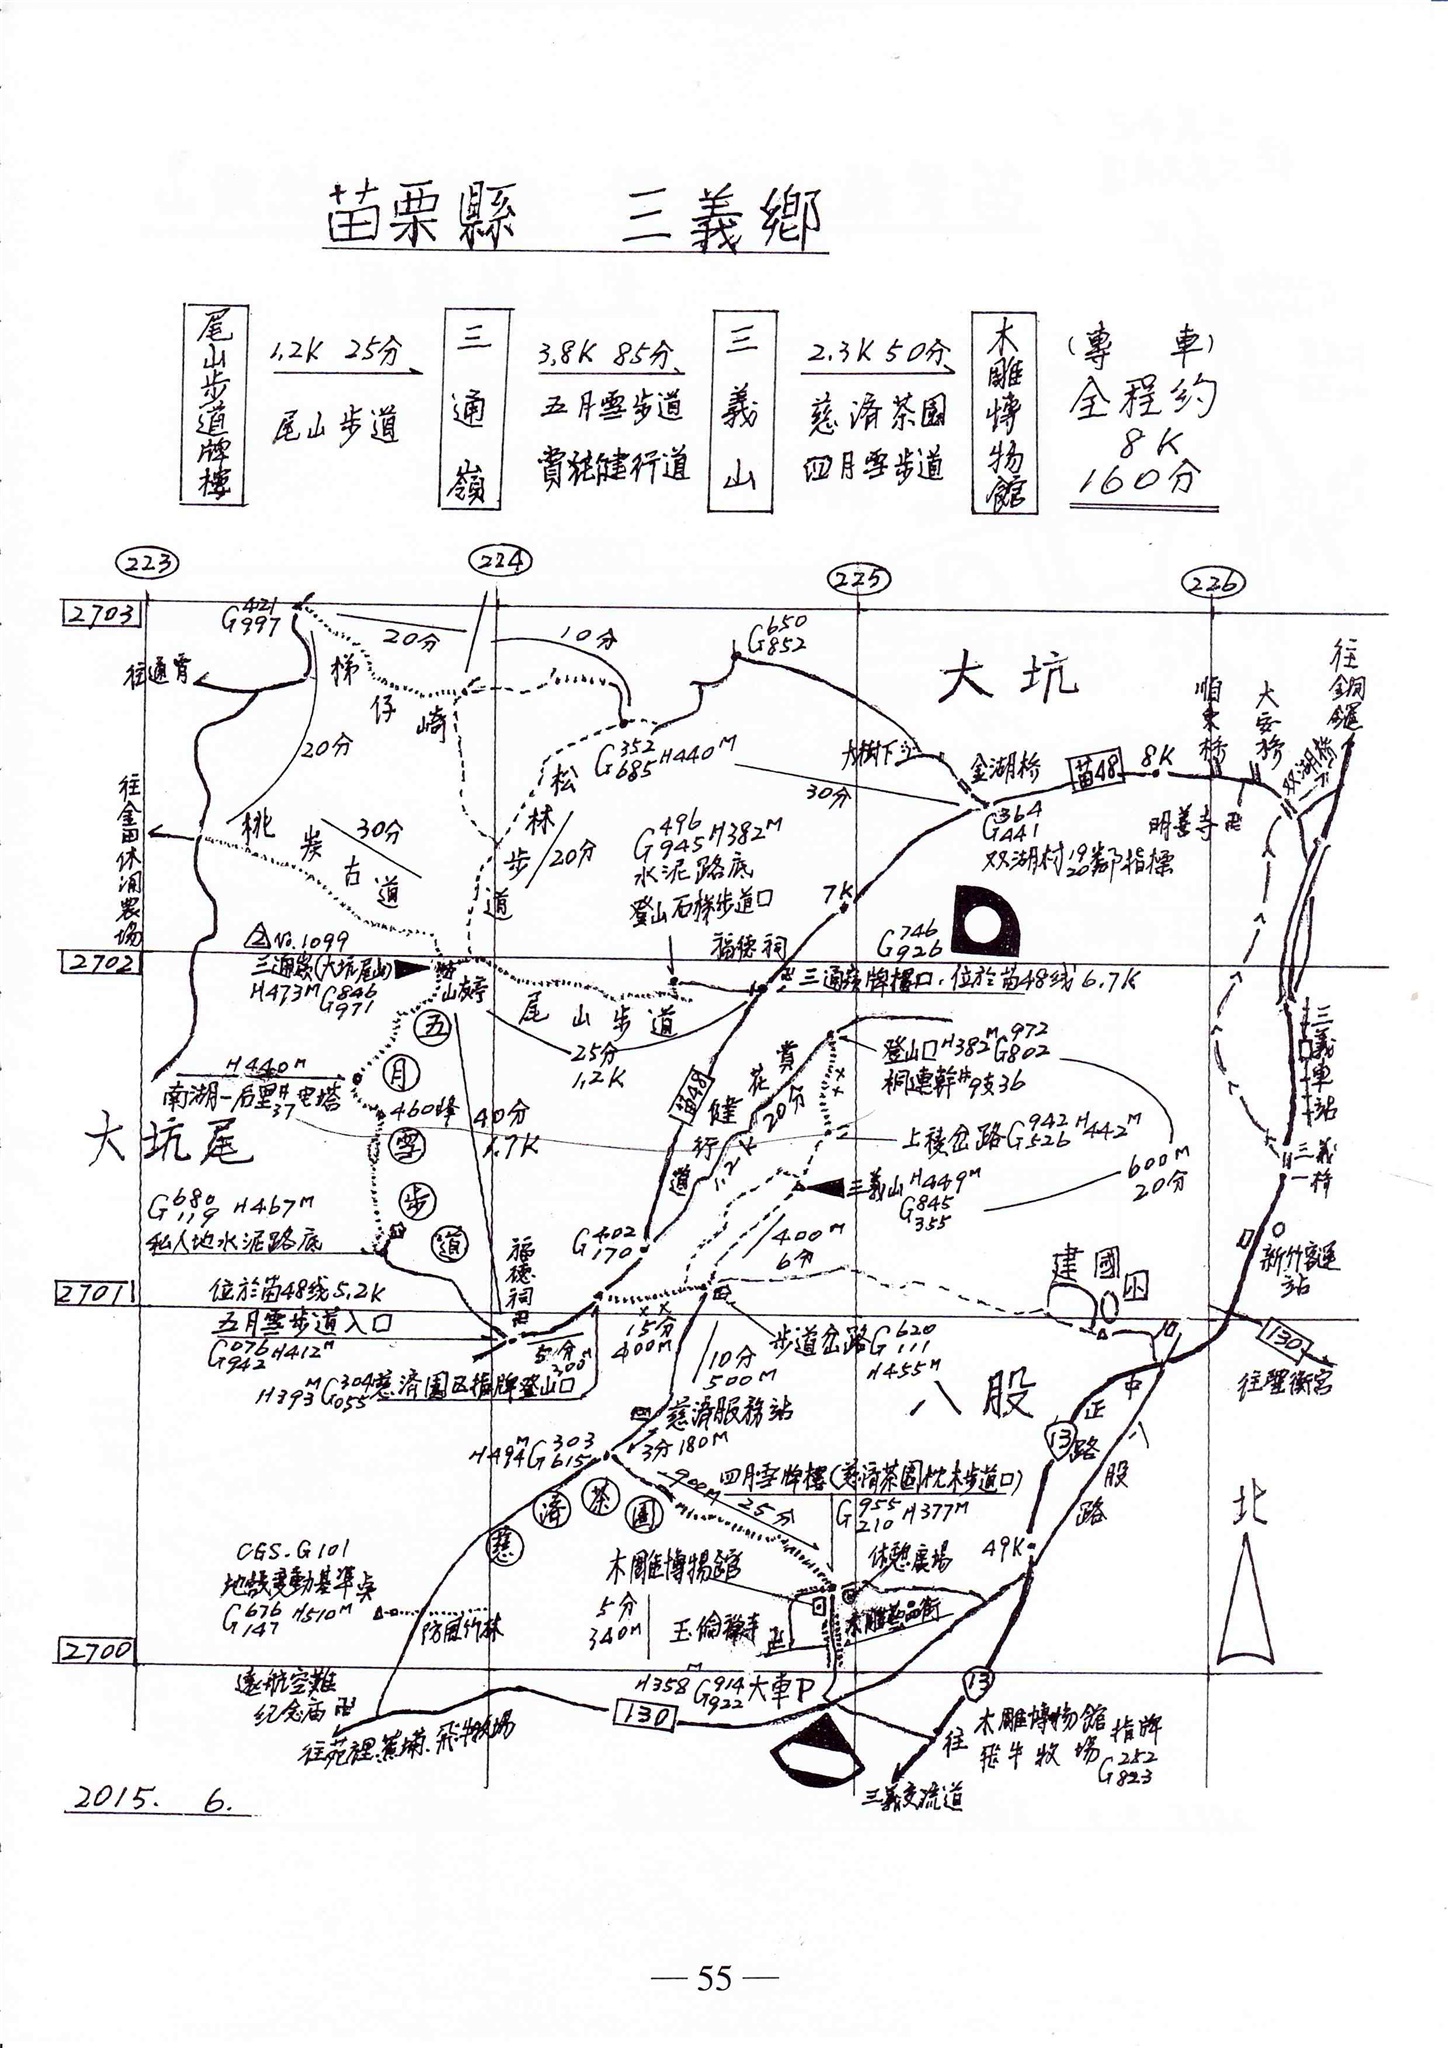 苗栗縣 三義鄉
尾山步道牌樓
1.2K 25分
尾山步道
三通嶺
3.8K 85分
五月雪步道
賞花健行道
三義山
2.3K 50分
慈濟茶園
四月雪步道
木雕博物館
(專車)
全程約
8K
160分
223
224
225
226
2703
G421
997
20分
10分
G650
852
往通霄
梯仔崎
20分
大坑
往銅鑼
順東橋
大安橋
双湖橋
G352
685 H440M
大樹下
金湖桥
苗48
8K
30分
G364
441
明善寺
双湖村19鄰指標
20
往金田休濶農場
桃炭古道
30分
松林步道
20分
G496
945 H382M
水泥路底
登山石梯步道口
7K
福德祠
G746
926
2702
No.1099
三通嶺(大坑尾山)
H473M G846
971
山友亭
三通嶺牌樓口,位於苗48线 6.7K
尾山步道
25分
1.2K
五月雪步道
H440M
南湖-后里#37电塔
460峰
40分
1.7K
苗48
賞花健行道
1.2K 20分
登山口H382M G972
802
桐連幹#9支36
上稜岔路G942
526 H442M
三義山H449M
G845
355
600M
20分
400M
6分
三義車站
三義一桥
新竹客運站
大坑尾
G680
119 H467M
私人地水泥路底
G402
170
福德祠
建國國小
2701
位於苗48线5.2K
五月雪步道入口
G076
942 H412M
5分
200M
H393M G304
055 慈濟園区指牌登山口
15分
400M
10分
500M
步道岔路G620
111
H455M
130
往聖衡宮
八股
中正路
八股路
13
慈濟服務站
3分180M
H494M G303
615
慈濟茶園
900M 25分
四月雪牌樓(慈濟茶園枕木步道口)
G955
210 H377M
49K
休憩廣場
木雕博物館
5分
340M
玉倫禪寺
木雕藝品街
CGS.G101
地殼變動基準点
G676
147 H510M
防風竹林
北
2700
遠航空難
纪念庙
H358M G914
922 大車P
130
13
往苑裡.蕉埔.飛牛牧場
往木雕博物館 指牌
飛牛牧場 G252
823
三義交流道
2015. 6.
— 55 —